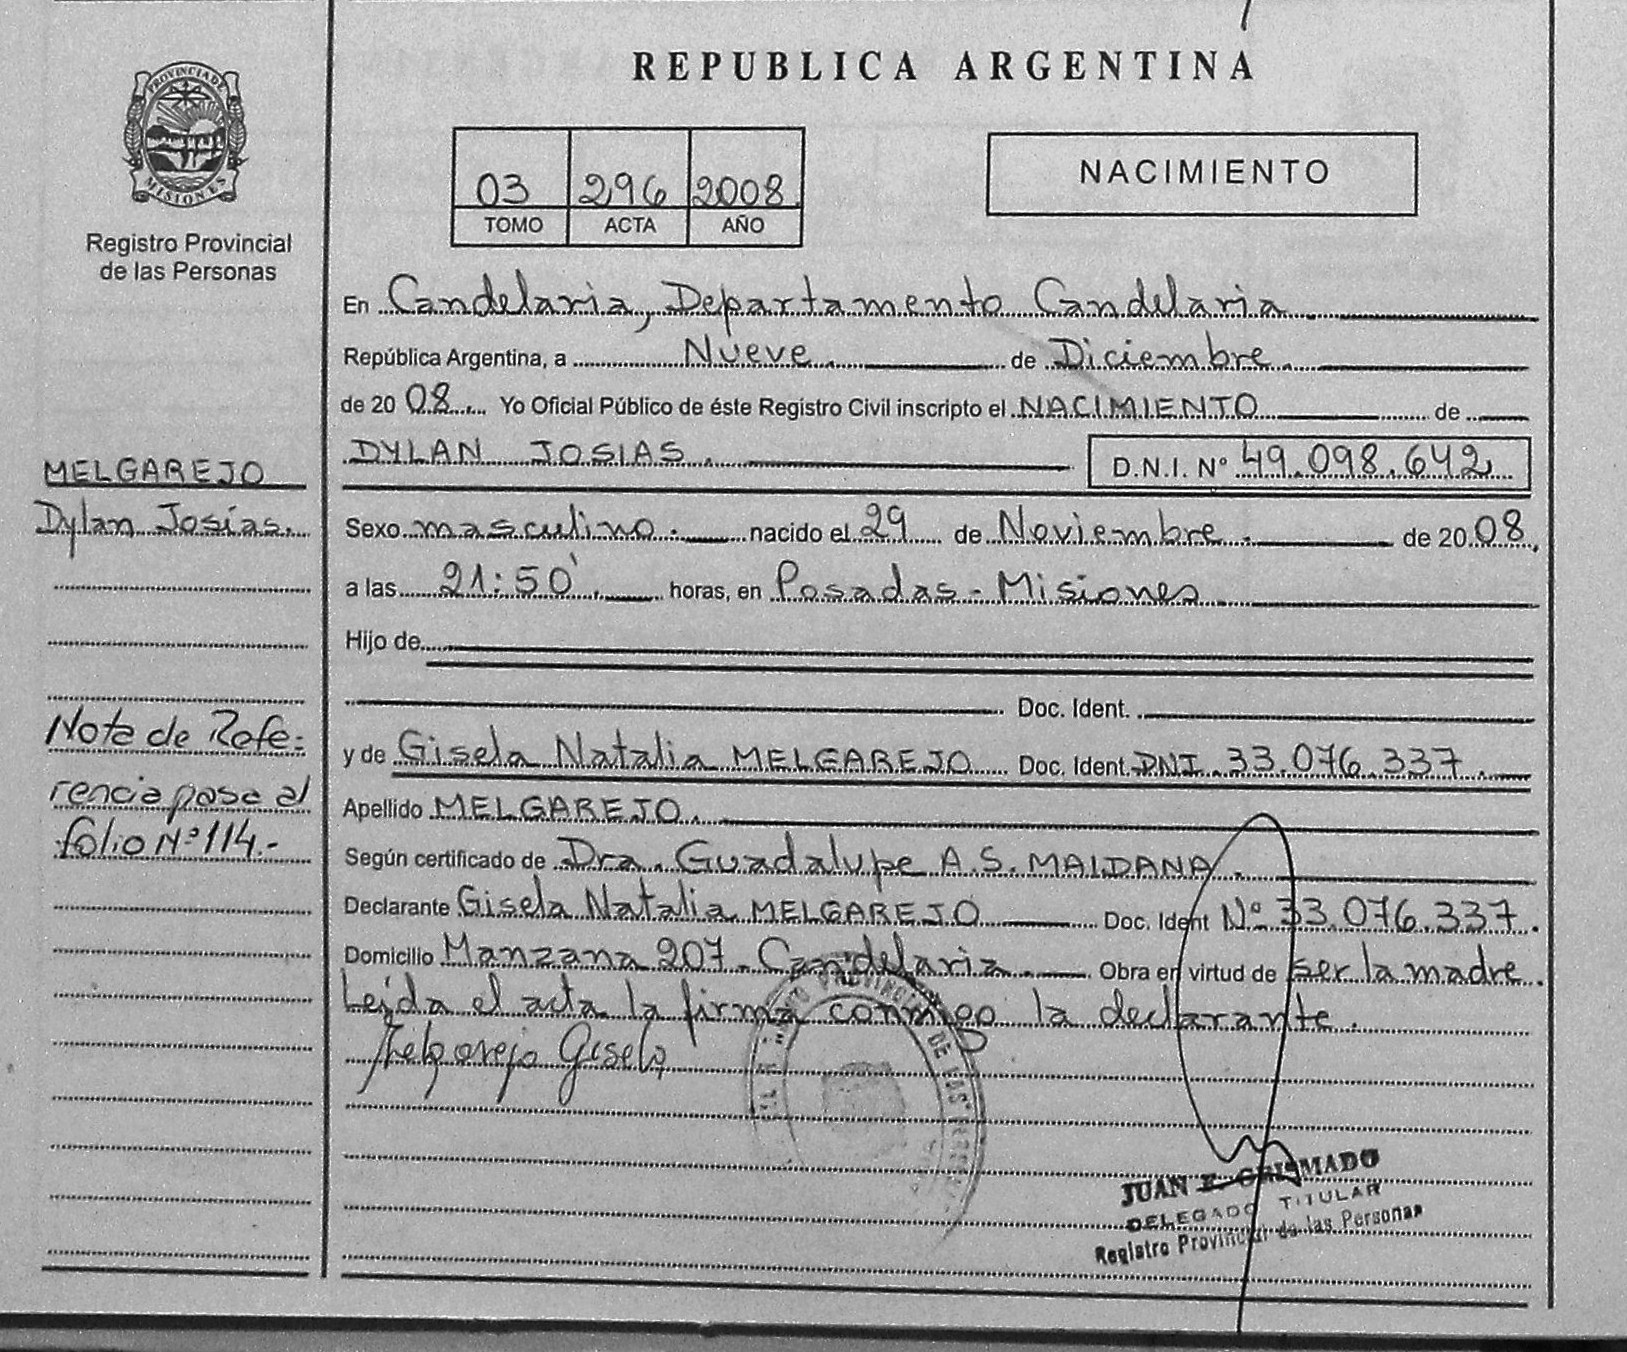 PROVINCIA DE
MISIONES
Registro Provincial
de las Personas
MELGAREJO
Dylan Josías.
Nota de Refe-
rencia pasa al
folio Nº 114.-
REPUBLICA ARGENTINA
03 296 2008
TOMO ACTA AÑO
NACIMIENTO
En Candelaria, Departamento Candelaria
República Argentina, a Nueve. de Diciembre.
de 20 08. Yo Oficial Público de éste Registro Civil inscripto el NACIMIENTO de
DYLAN JOSIAS. D.N.I. Nº 49.098.642
Sexo masculino. nacido el 29 de Noviembre. de 20 08.
a las 21:50'. horas, en Posadas - Misiones
Hijo de
Doc. Ident.
y de Gisela Natalia MELGAREJO Doc. Ident. DNI. 33.076.337.
Apellido MELGAREJO.
Según certificado de Dra. Guadalupe A.S. MALDANA.
Declarante Gisela Natalia MELGAREJO Doc. Ident Nº 33.076.337.
Domicilio Manzana 207 - Candelaria. Obra en virtud de ser la madre.
Leída el acta la firma conmigo la declarante.
Melgarejo Gisela
PROVINCIAL DE LAS
JUAN E. GRISMADO
DELEGADO TITULAR
Registro Provincial de las Personas